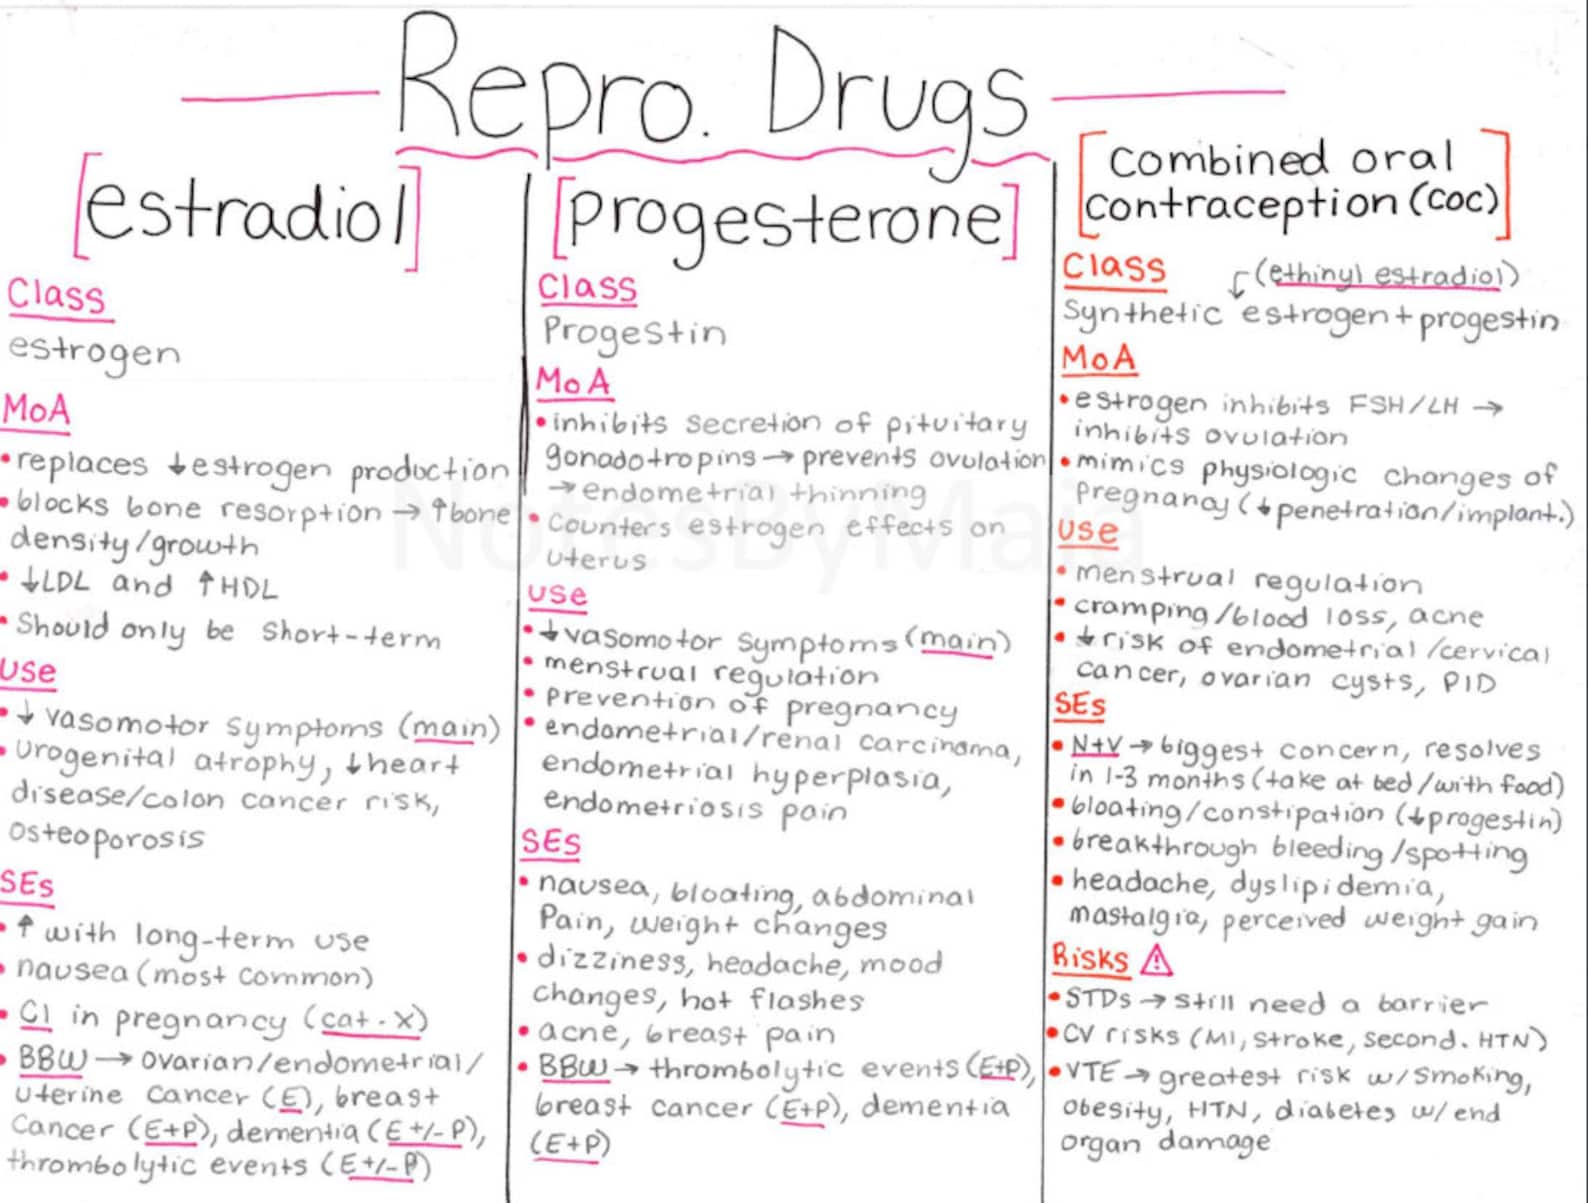 Repro. Drugs
[estradiol]
Class
estrogen
MoA
•replaces ↓estrogen production
•blocks bone resorption → ↑bone
density/growth
• ↓LDL and ↑HDL
• Should only be short-term
use
• ↓ vasomotor symptoms (main)
• urogenital atrophy, ↓heart
disease/colon cancer risk,
osteoporosis
SEs
• ↑ with long-term use
• nausea (most common)
• CI in pregnancy (cat. X)
• BBW → ovarian/endometrial/
uterine cancer (E), breast
cancer (E+P), dementia (E+/-P),
thrombolytic events (E+/-P)
[progesterone]
Class
Progestin
MoA
•inhibits secretion of pituitary
gonadotropins → prevents ovulation
→ endometrial thinning
• counters estrogen effects on
uterus
use
• ↓vasomotor symptoms (main)
• menstrual regulation
• prevention of pregnancy
• endometrial/renal carcinoma,
endometrial hyperplasia,
endometriosis pain
SEs
• nausea, bloating, abdominal
Pain, weight changes
• dizziness, headache, mood
changes, hot flashes
• acne, breast pain
• BBW → thrombolytic events (E+P),
breast cancer (E+P), dementia
(E+P)
[combined oral
contraception (COC)]
Class (ethinyl estradiol)
Synthetic estrogen + progestin
MoA
•estrogen inhibits FSH/LH →
inhibits ovulation
•mimics physiologic changes of
pregnancy (↓penetration/implant.)
use
• menstrual regulation
• cramping/blood loss, acne
• ↓risk of endometrial/cervical
cancer, ovarian cysts, PID
SEs
• N+V → biggest concern, resolves
in 1-3 months (take at bed/with food)
• bloating/constipation (↓progestin)
• breakthrough bleeding/spotting
• headache, dyslipidemia,
mastalgia, perceived weight gain
Risks ⚠
• STDs → still need a barrier
• CV risks (MI, stroke, second. HTN)
• VTE → greatest risk w/smoking,
obesity, HTN, diabetes w/ end
organ damage
NotesByMaia